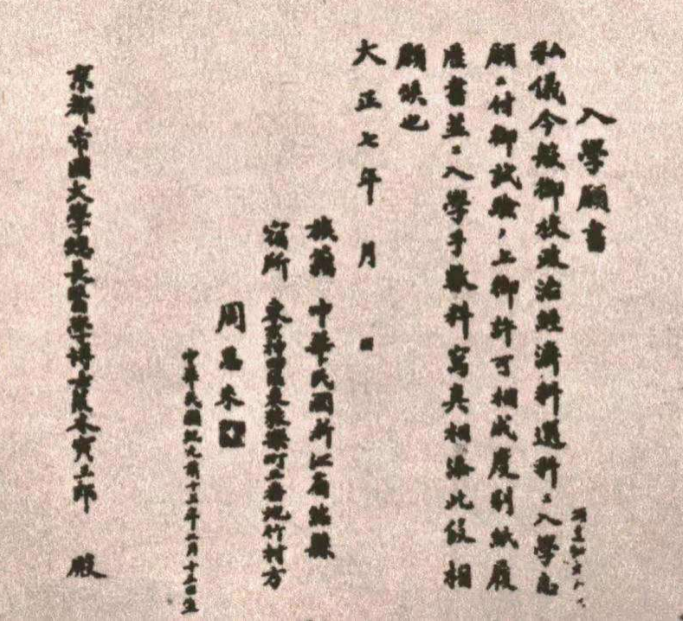 入學願書
私儀今般御校政治經濟科選科ニ入學志
願ニ付御試驗ノ上御許可相成度別紙履
歷書並ニ入學手數料寫真相添此段相
願候也
大正七年 月 日
族籍 中華民國浙江省紹縣
宿所 東京神田區表猿樂町 番地竹村方
周恩來
中華民國紀元前十三年二月十三日生
京都帝國大學總長醫學博士荒木寅三郎 殿